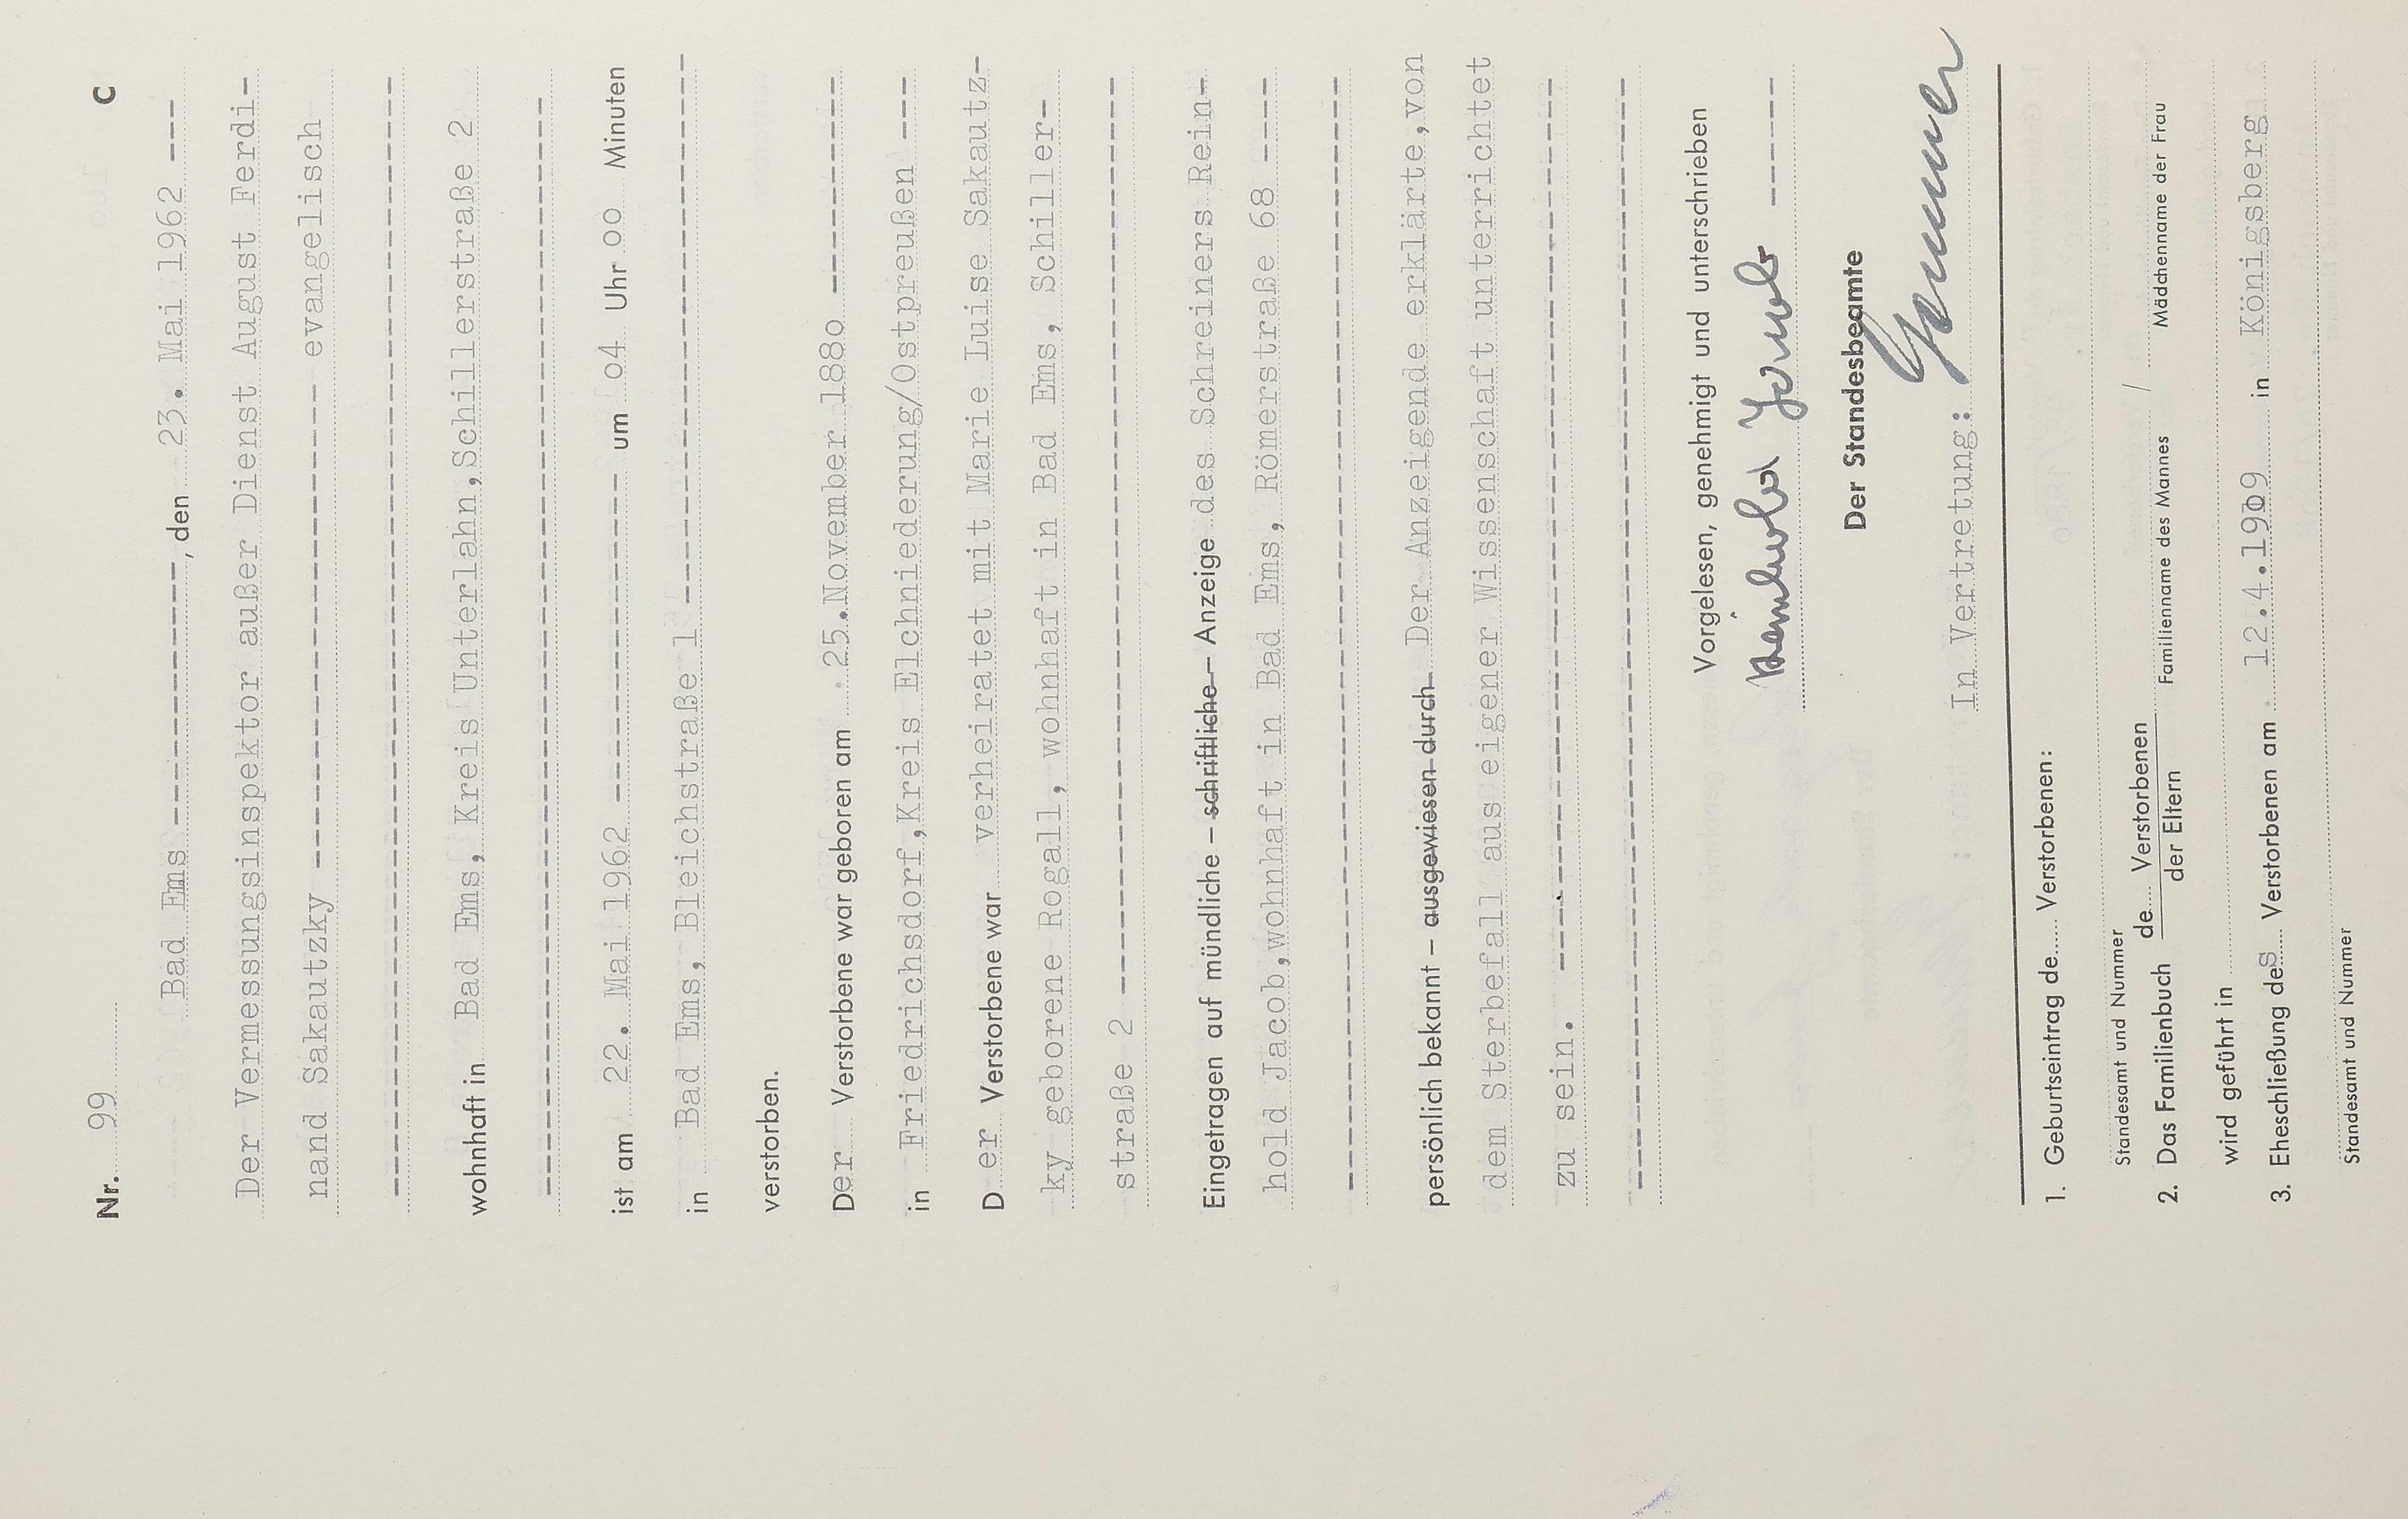 Nr. 99 C
Bad Ems ----------------, den 23. Mai 1962 ---
Der Vermessungsinspektor außer Dienst August Ferdi-
nand Sakautzky ----------------------------- evangelisch
wohnhaft in Bad Ems, Kreis Unterlahn,Schillerstraße 2
ist am 22. Mai 1962 -------------------- um o4 Uhr oo Minuten
in Bad Ems, Bleichstraße 1 ---------------------------------
verstorben.
Der Verstorbene war geboren am 25.November 188o -------------
in Friedrichsdorf,Kreis Elchniederung/Ostpreußen ---
Der Verstorbene war verheiratet mit Marie Luise Sakautz-
ky geborene Rogall, wohnhaft in Bad Ems, Schiller-
straße 2 -------------------------------------------------------
Eingetragen auf mündliche – schriftliche – Anzeige des Schreiners Rein-
hold Jacob,wohnhaft in Bad Ems, Römerstraße 68 ----
persönlich bekannt – ausgewiesen durch Der Anzeigende erklärte,von
dem Sterbefall aus eigener Wissenschaft unterrichtet
zu sein. -------------------------------------------------------
Vorgelesen, genehmigt und unterschrieben
Reinhold Jacob -------
Der Standesbeamte
In Vertretung:
1. Geburtseintrag de...... Verstorbenen:
Standesamt und Nummer
2. Das Familienbuch de.... Verstorbenen /
der Eltern Familienname des Mannes Mädchenname der Frau
wird geführt in
3. Eheschließung des Verstorbenen am 12.4.1909 in Königsberg
Standesamt und Nummer